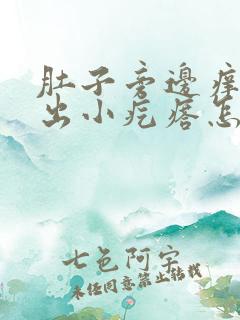 肚子旁邊痒
出小疙瘩怎
七色阿字
未经同意禁止转载